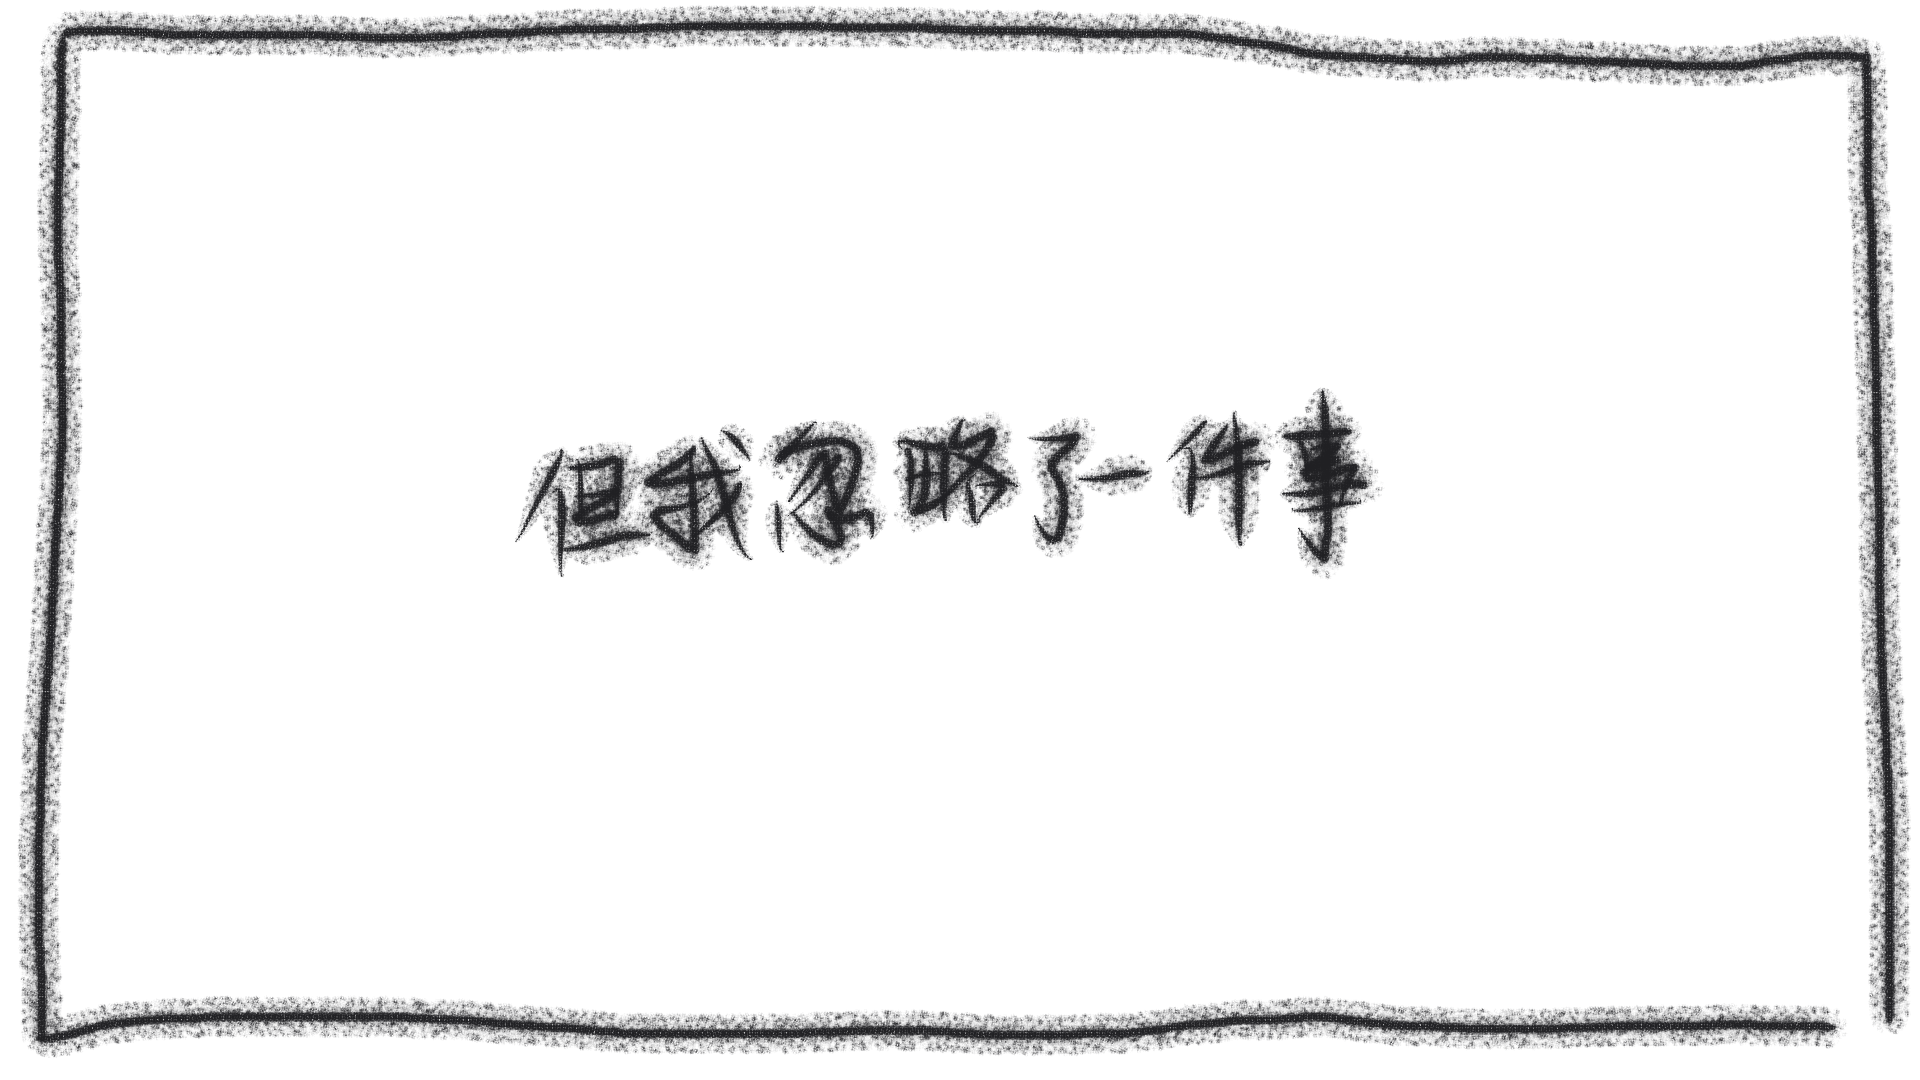 但我忽略了一件事